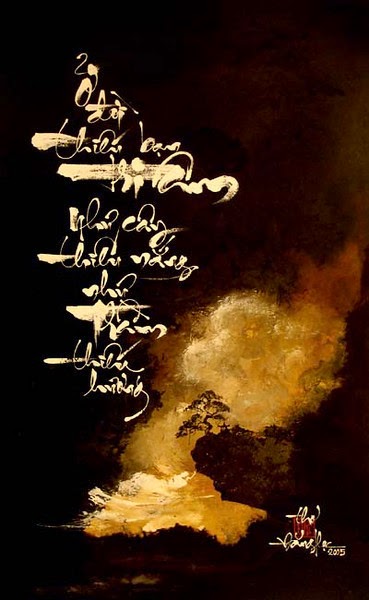 Ở
đời
thiếu bạn
tri âm
Như cây
thiếu nắng
như
trầm
thiếu
hương
Thơ
2015